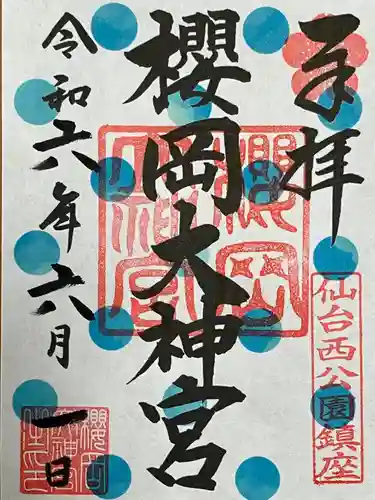 奉拝
仙台西公園鎮座
櫻岡大神宮
櫻岡
大神宮
令和六年六月一日